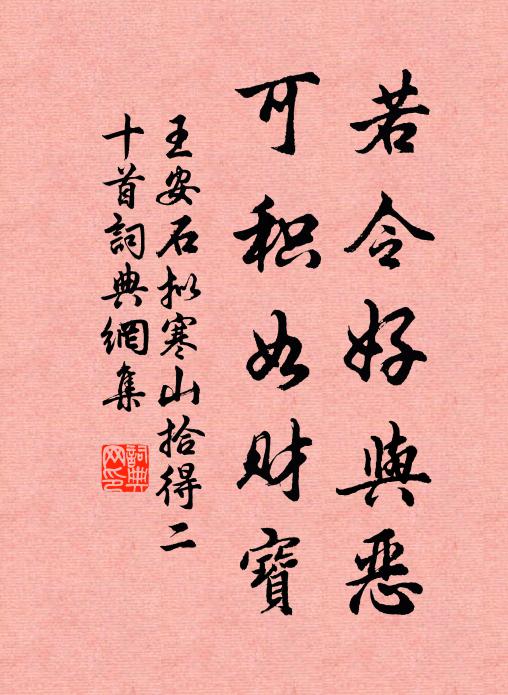 若令好與惡
可积如财寶
王安石拟寒山拾得二
十首詞典網集
詞典
网印